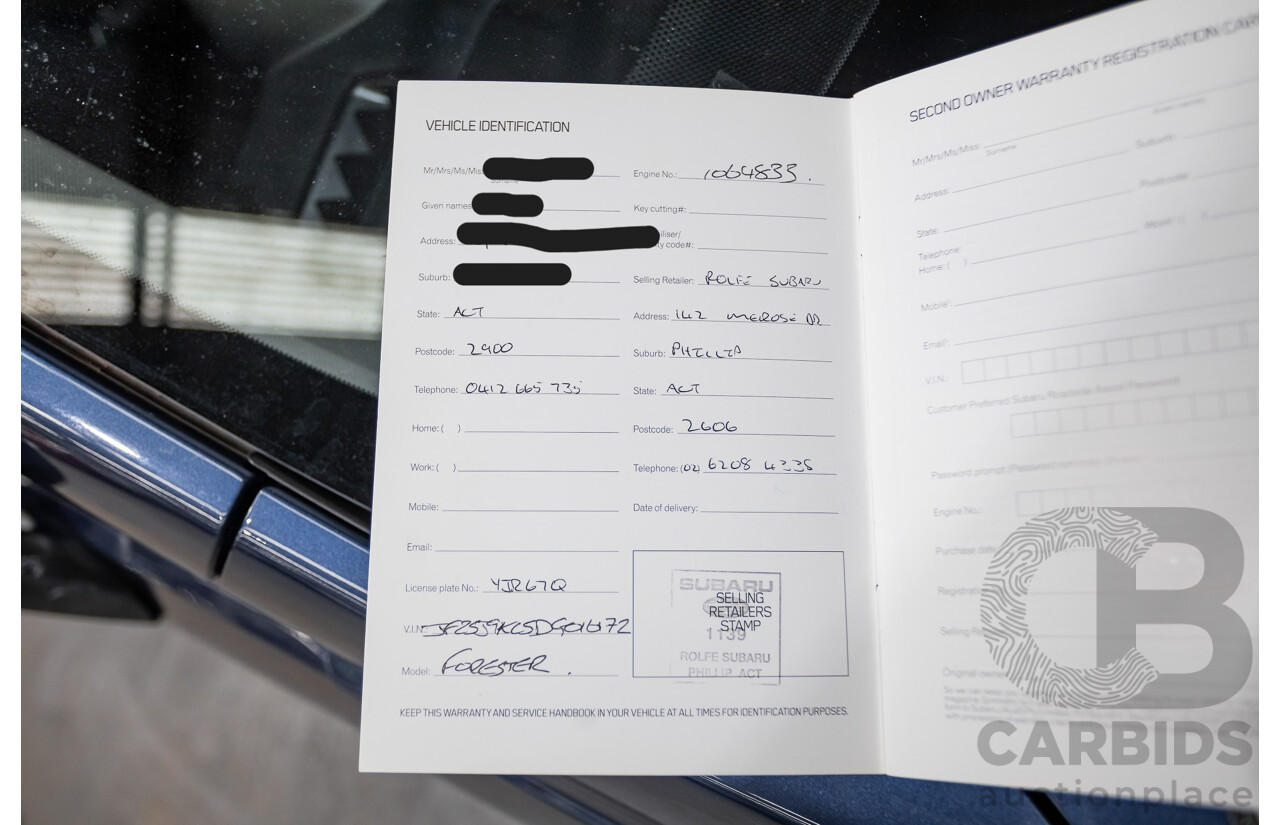 VEHICLE IDENTIFICATION
Mr/Mrs/Ms/Miss
Given names
Address:
Suburb:
State: ACT
Postcode: 2900
Telephone: 0412 665 735
Home: ( )
Work: ( )
Mobile:
Email:
License plate No.: YJR67Q
V.I.N.
Model: FORESTER.
Engine No.: 1064833.
Key cutting#:
code#:
Selling Retailer: ROLFE SUBARU
Address: 142 MELROSE DR
Suburb: PHILLIP
State: ACT
Postcode: 2606
Telephone: (02) 6208 4335
Date of delivery:
SUBARU
SELLING
RETAILERS
STAMP
1139
ROLFE SUBARU
PHILLIP ACT
KEEP THIS WARRANTY AND SERVICE HANDBOOK IN YOUR VEHICLE AT ALL TIMES FOR IDENTIFICATION PURPOSES.
SECOND OWNER WARRANTY REGISTRATION CARD
Mr/Mrs/Ms/Miss:
Surname
Suburb:
Address:
Postcode:
State:
Telephone:
Home: ( )
Mobile:
Email:
V.I.N.:
Customer Preferred Subaru Roadside Assist Password
Engine No.:
Purchase date
Original owner
CB
CARBIDS
auctionplace